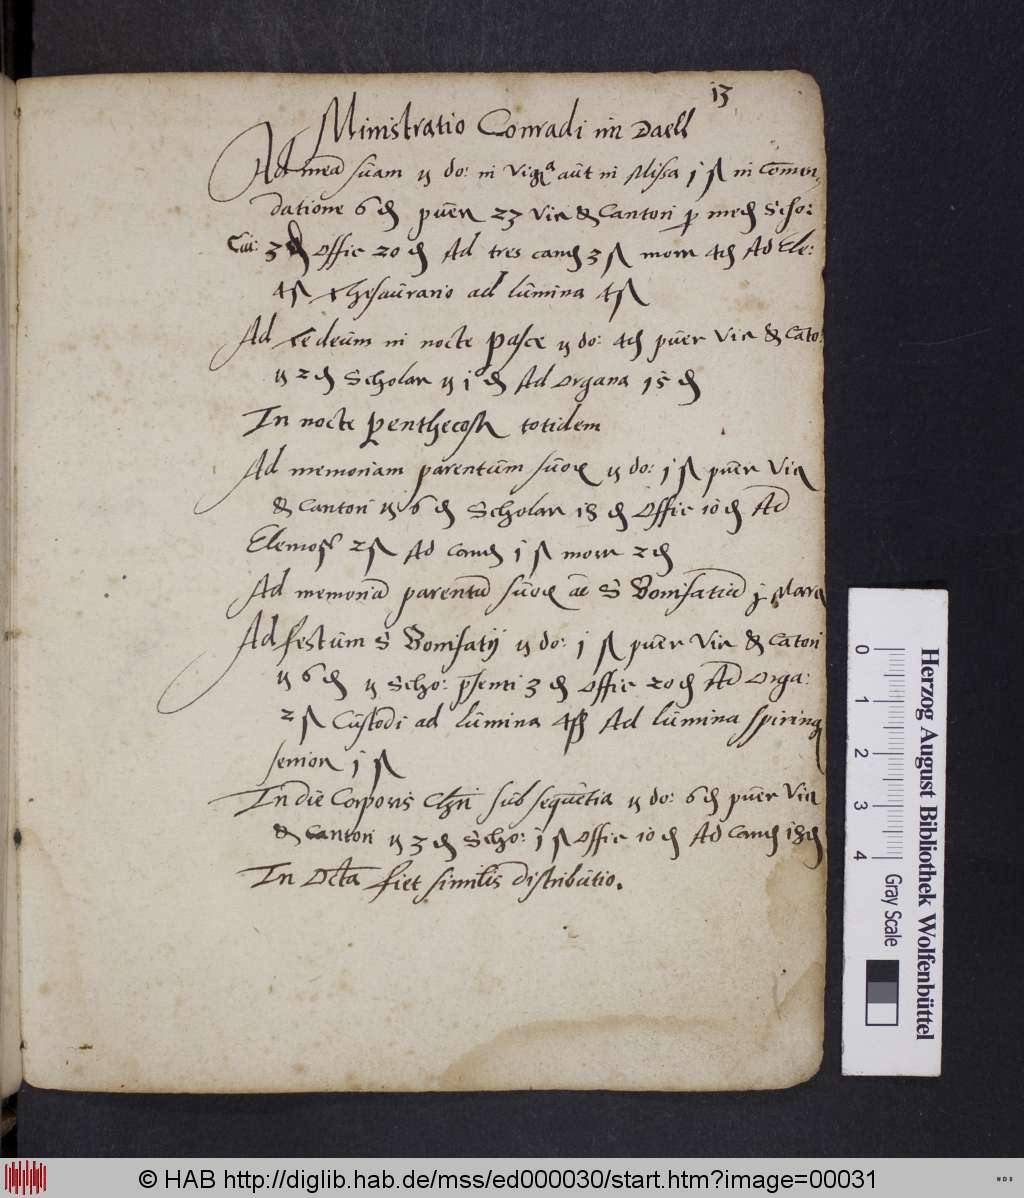 13
Ministratio Conradi im Daell
Ad mēa suam ij do: in Vigᵃ aut in Missa j ß in Comen,
datione 6 ₰ puer 23 Vic & Cantori p med Scho:
3 ₰ Offic 20 ₰ Ad tres cand 3 ß morr 4 ₰ Ad Ele:
4 ß Thesaurario ad lumina 4 ß
Ad Te deum in nocte Pasce ij do: 4 ₰ puer Vic & Cāto:
ij 2 ₰ Scholar ij j ₰ Ad Organa 15 ₰
In nocte Penthecost totidem
Ad memoriam parentum suor ij do: j ß puer Vic
& Cantori ij 6 ₰ Scholar 18 ₰ Offic 10 ₰ Ad
Elemos 2 ß Ad Cand j ß morr 2 ₰
Ad memoriā parentū suor S Bonifatiū
Ad festum S Bonifatij ij do: j ß puer Vic & Cātori
ij 6 ₰ ij Scho: p̄senti 3 ₰ Offic 20 ₰ Ad Orga:
2 ß Custodi ad lumina 4 ß Ad lumina spiring
senior j ß
In die Corporis Chri subsequētia ij do: 6 ₰ puer Vic
& Cantori ij 3 ₰ Scho: j ß Offic 10 ₰ Ad Cand 18 ₰
In Octa fiet similis distributio.
0 1 2 3 4
Herzog August Bibliothek Wolfenbüttel
Gray Scale
© HAB http://diglib.hab.de/mss/ed000030/start.htm?image=00031